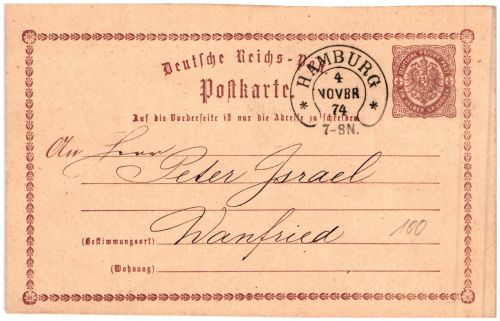 Deutsche Reichs-P
Postkarte
HAMBURG
4
NOVBR
74
7-8N.
Auf die Vorderseite ist nur die Adresse zu schreiben
An Herrn
Peter Israel
(Bestimmungsort) Wanfried
100
(Wohnung)